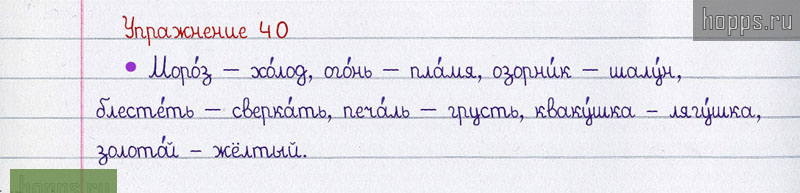 hopps.ru
Упражнение 40
• Моро́з – хо́лод, ого́нь – пла́мя, озорни́к – шалу́н,
блесте́ть – сверка́ть, печа́ль – грусть, кваку́шка – лягу́шка,
золото́й – жёлтый.
hopps.ru